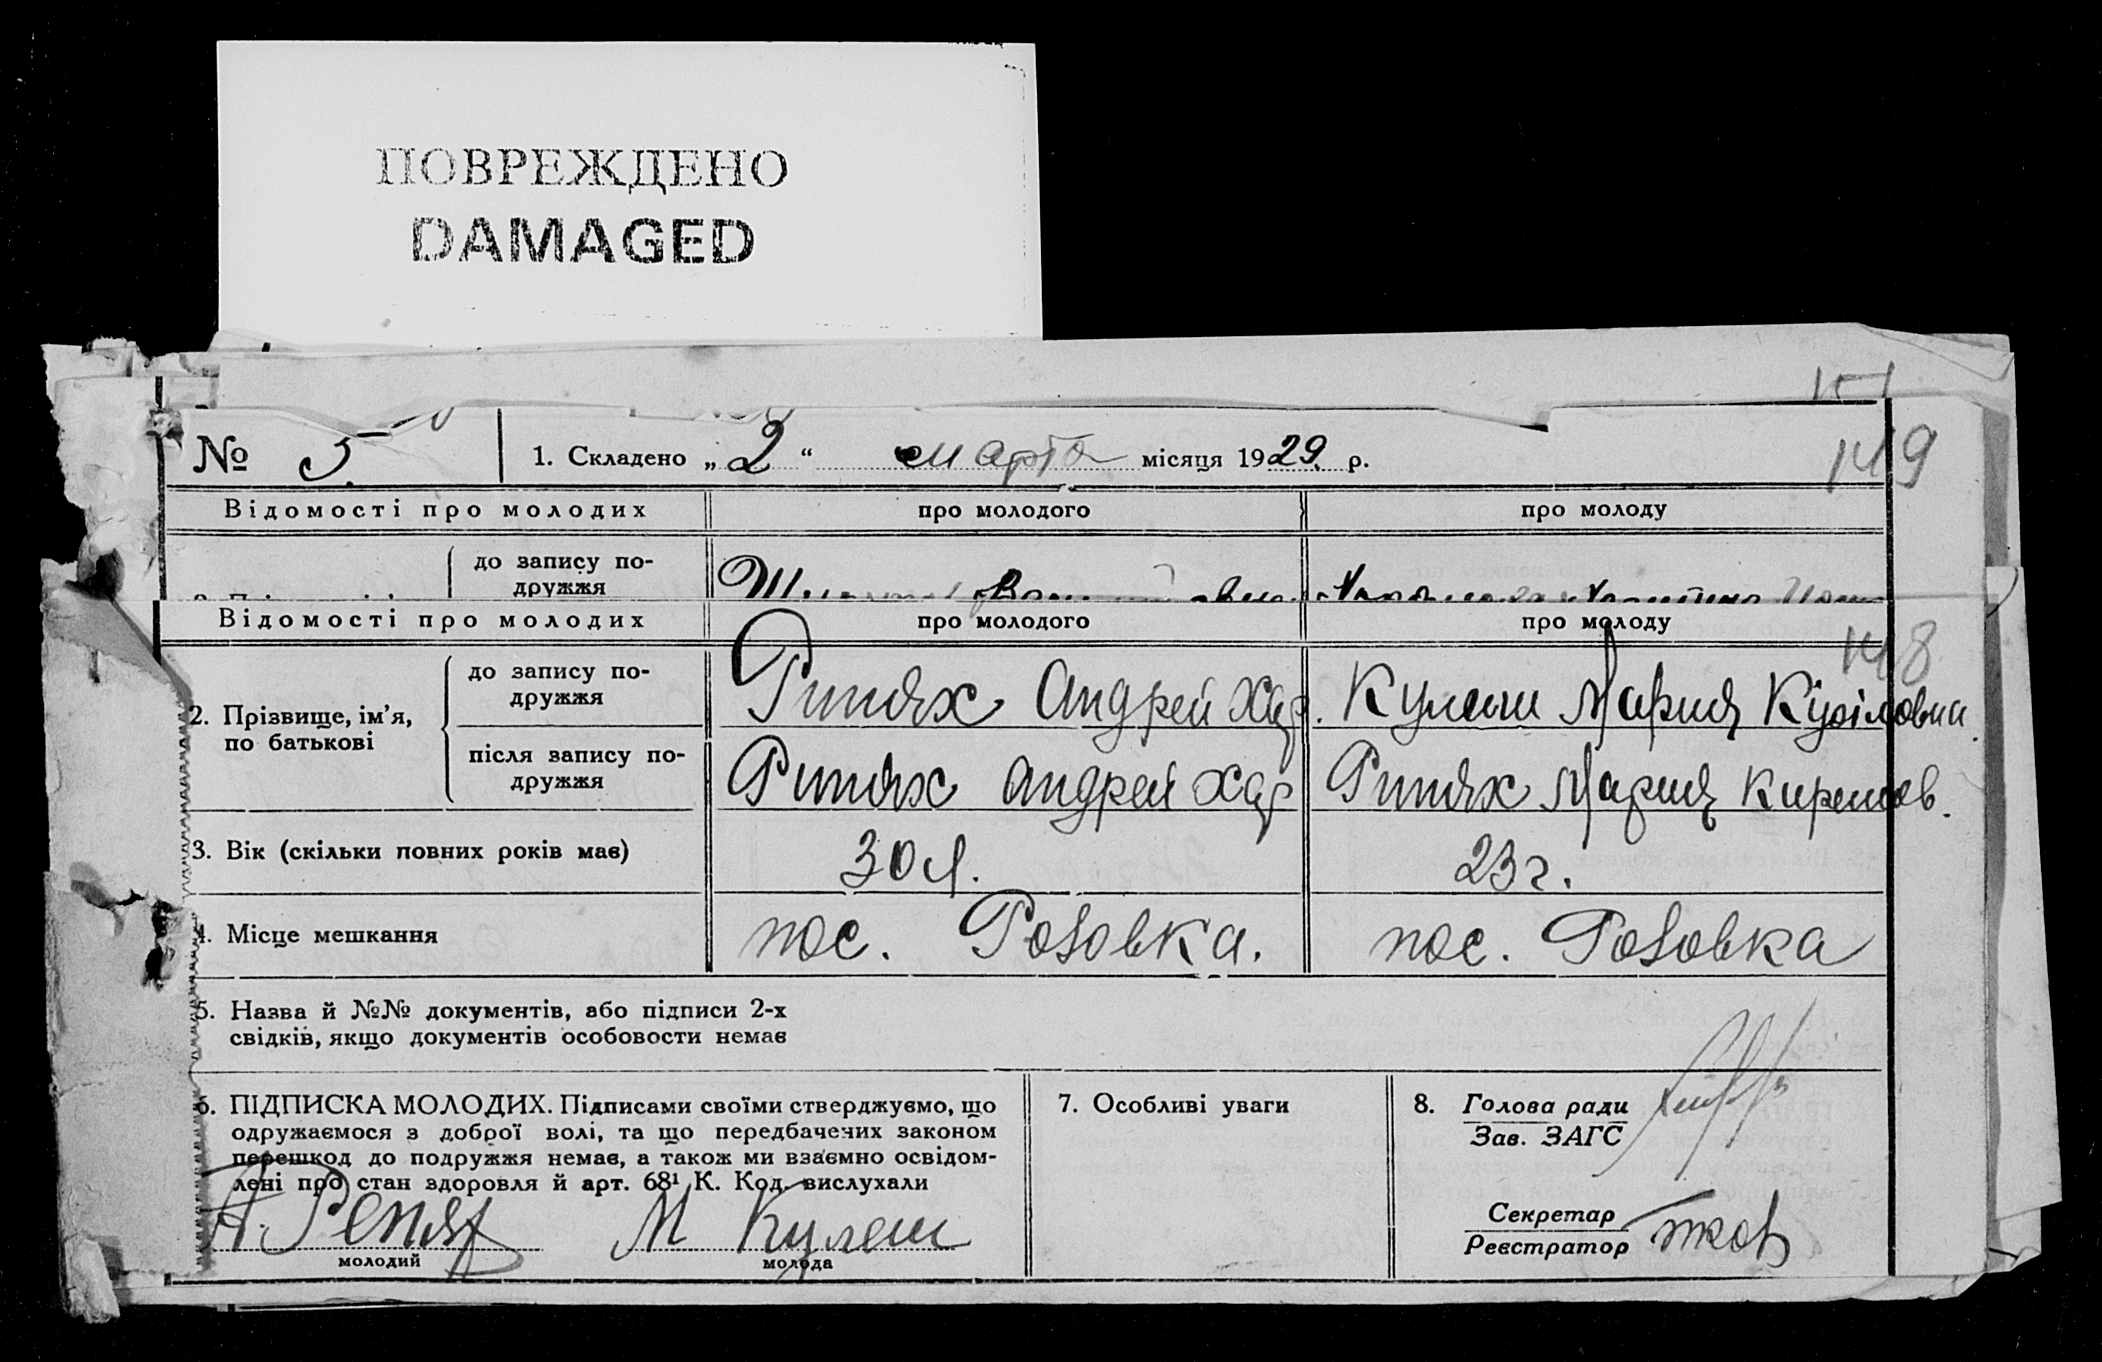 ПОВРЕЖДЕНО
DAMAGED
149
№ 5. 1. Складено „2“ марта місяця 1929 р.
Відомості про молодих про молодого про молоду
до запису по-
дружжя
Відомості про молодих про молодого про молоду
148
2. Прізвище, ім’я,
по батькові
до запису по-
дружжя
Рипях Андрей Хар. Кулеш Мария
після запису по-
дружжя
Рипях Андрей Хар Рипях Мария
3. Вік (скільки повних років має) 30 л. 23 г.
4. Місце мешкання пос. Розовка. пос. Розовка
5. Назва й №№ документів, або підписи 2-х
свідків, якщо документів особовости немає
6. ПІДПИСКА МОЛОДИХ. Підписами своїми стверджуємо, що
одружаємося з доброї волі, та що передбачених законом
перешкод до подружжя немає, а також ми взаємно освідом-
лені про стан здоровля й арт. 68¹ К. Код. вислухали
А. Репях М Кулеш
молодий молода
7. Особливі уваги
8. Голова ради
Зав. ЗАГС
Секретар
Реєстратор